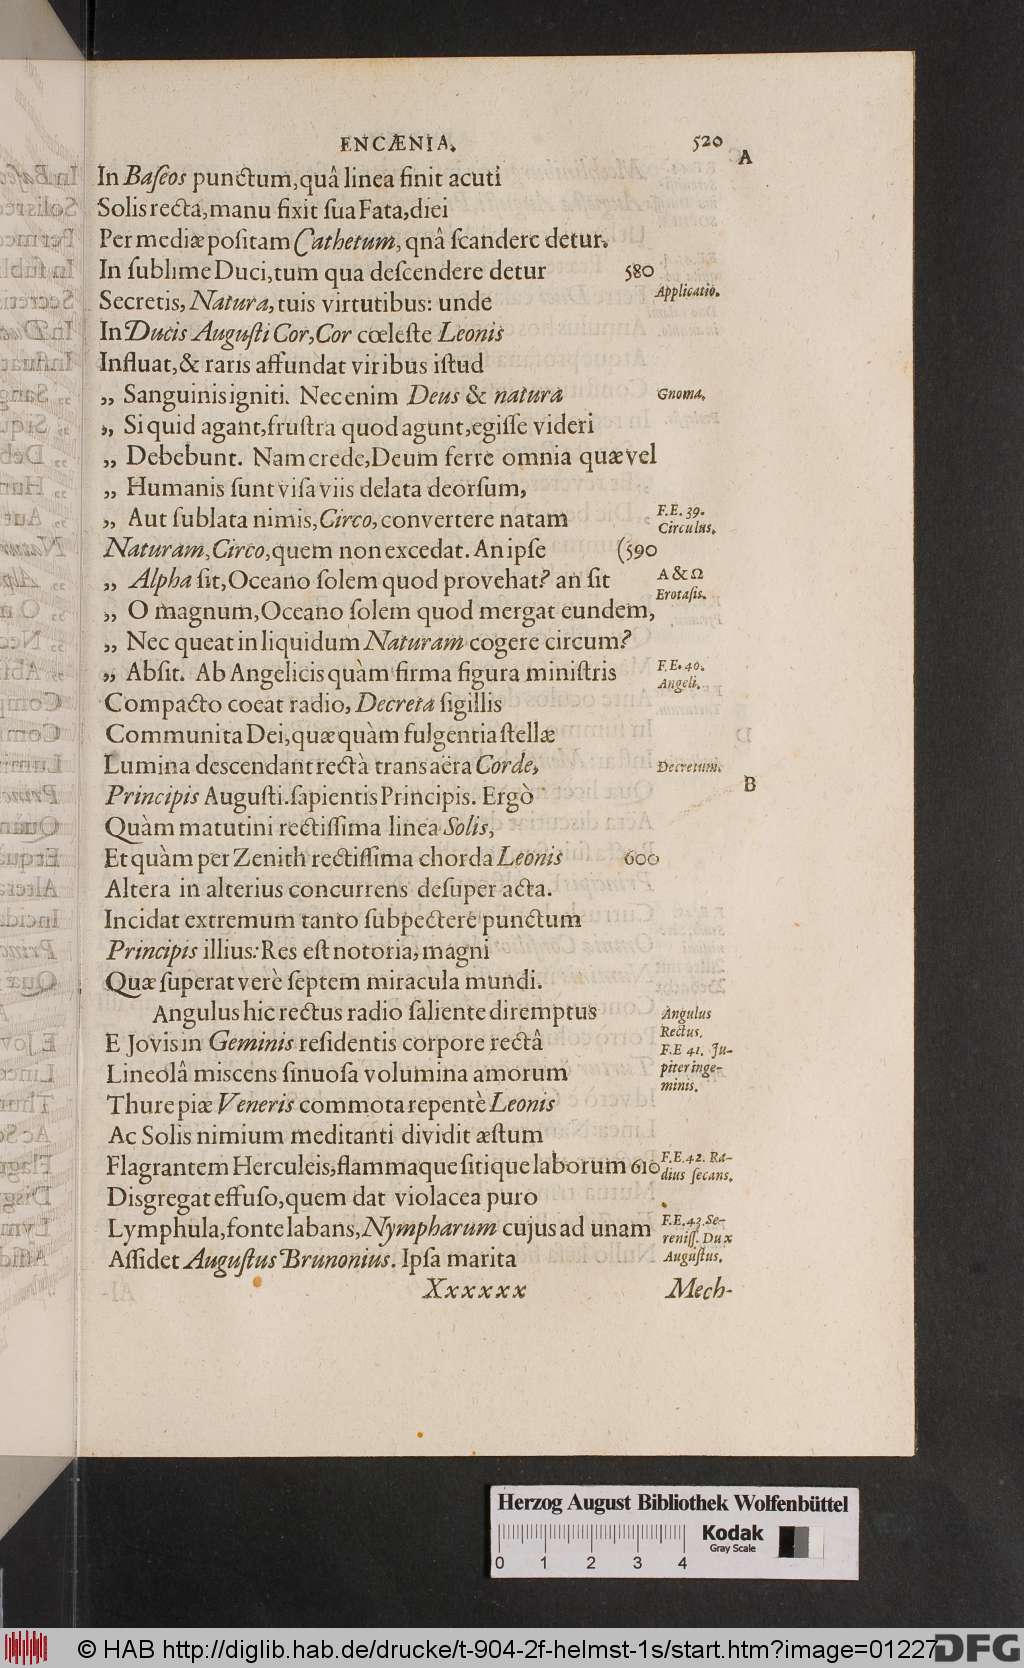 ENCÆNIA. 520
A
In Baſeos punctum,quâ linea finit acuti
Solis recta,manu fixit ſua Fata,diei
Per mediæ poſitam Cathetum, qnâ ſcandere detur.
In ſublime Duci,tum qua deſcendere detur 580
Secretis, Natura,tuis virtutibus: unde Applicatio.
In Ducis Auguſti Cor,Cor cœleſte Leonis
Influat,& raris affundat viribus iſtud
„ Sanguinis igniti. Nec enim Deus & natura Gnoma.
„ Si quid agant,fruſtra quod agunt,egiſſe videri
„ Debebunt. Nam crede,Deum ferre omnia quæ vel
„ Humanis ſunt viſa viis delata deorſum,
„ Aut ſublata nimis,Circo,convertere natam F.E. 39. Circulus.
Naturam,Circo,quem non excedat. An ipſe (590
„ Alpha ſit,Oceano ſolem quod provehat? an ſit A & Ω Erotaſis.
„ O magnum,Oceano ſolem quod mergat eundem,
„ Nec queat in liquidum Naturam cogere circum?
„ Abſit. Ab Angelicis quàm firma figura miniſtris F.E. 40. Angeli.
Compacto coeat radio, Decreta ſigillis
Communita Dei,quæ quàm fulgentia ſtellæ
Lumina descendant rectà trans aëra Corde, Decretum.
Principis Auguſti.ſapientis Principis. Ergò B
Quàm matutini rectiſſima linea Solis,
Et quàm per Zenith rectiſſima chorda Leonis 600
Altera in alterius concurrens deſuper acta.
Incidat extremum tanto ſubpectere punctum
Principis illius: Res eſt notoria, magni
Quæ ſuperat verè ſeptem miracula mundi.
Angulus hic rectus radio ſaliente diremptus Angulus Rectus.
E Jovis in Geminis reſidentis corpore rectâ F.E 41. Ju-
Lineolâ miscens ſinuoſa volumina amorum piter in ge-
minis.
Thure piæ Veneris commota repentè Leonis
Ac Solis nimium meditanti dividit æſtum
Flagrantem Herculeis,flammaque ſitique laborum 610 F.E. 42. Ra-
dius ſecans.
Disgregat effuſo,quem dat violacea puro
Lymphula,fonte labans,Nympharum cujus ad unam F.E. 43. Se-
reniſſ. Dux
Aſſidet Auguſtus Brunonius. Ipſa marita Auguſtus.
Xxxxxx Mech-
Herzog August Bibliothek Wolfenbüttel
Kodak
Gray Scale
0 1 2 3 4
© HAB http://diglib.hab.de/drucke/t-904-2f-helmst-1s/start.htm?image=01227
DFG